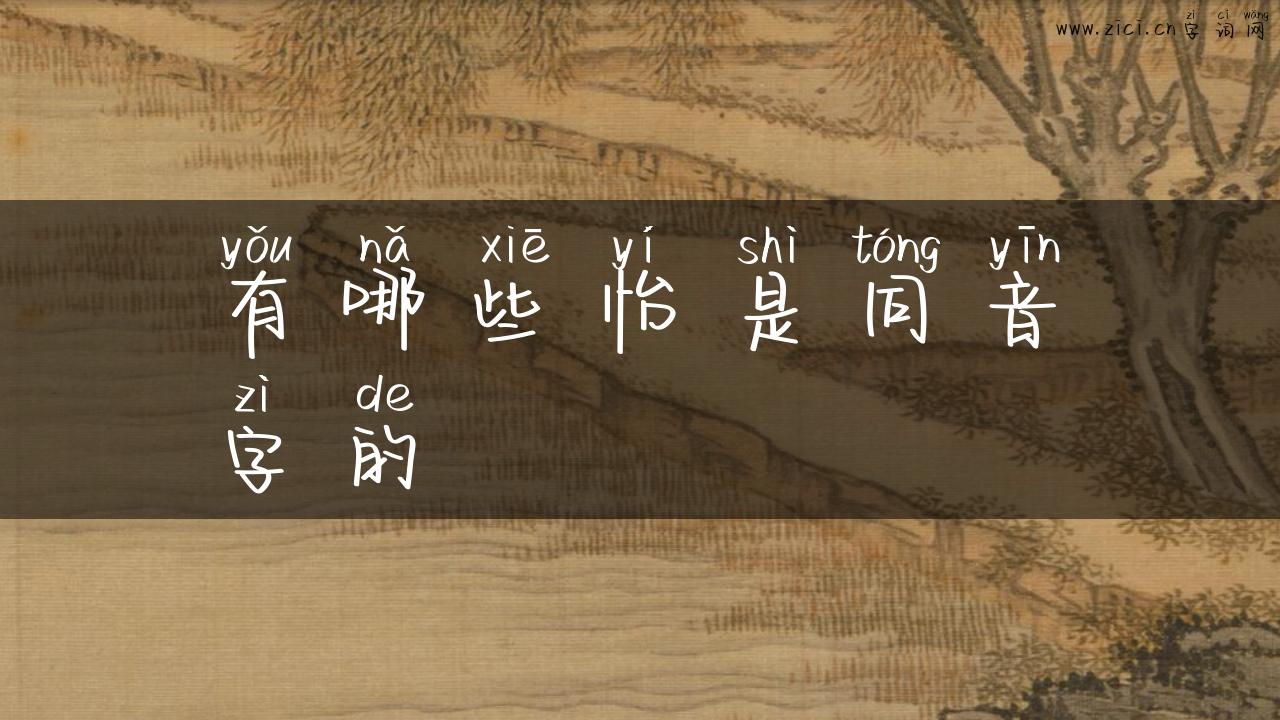 zì cí wǎng
www.zici.cn 字 词 网
yǒu nǎ xiē yí shì tóng yīn
有 哪 些 怡 是 同 音
zì de
字 的